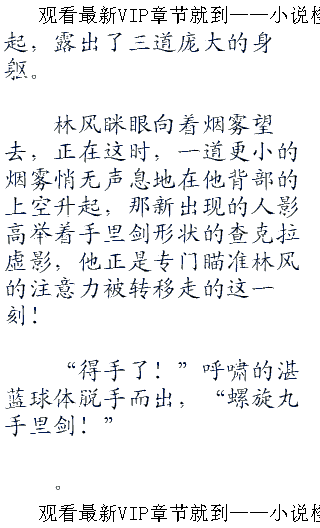 观看最新VIP章节就到——小说
起，露出了三道庞大的身
躯。
林风眯眼向着烟雾望
去，正在这时，一道更小的
烟雾悄无声息地在他背部的
上空升起，那新出现的人影
高举着手里剑形状的查克拉
虚影，他正是专门瞄准林风
的注意力被转移走的这一
刻！
“得手了！”呼啸的湛
蓝球体脱手而出，“螺旋丸
手里剑！”
。
观看最新VIP章节就到——小说